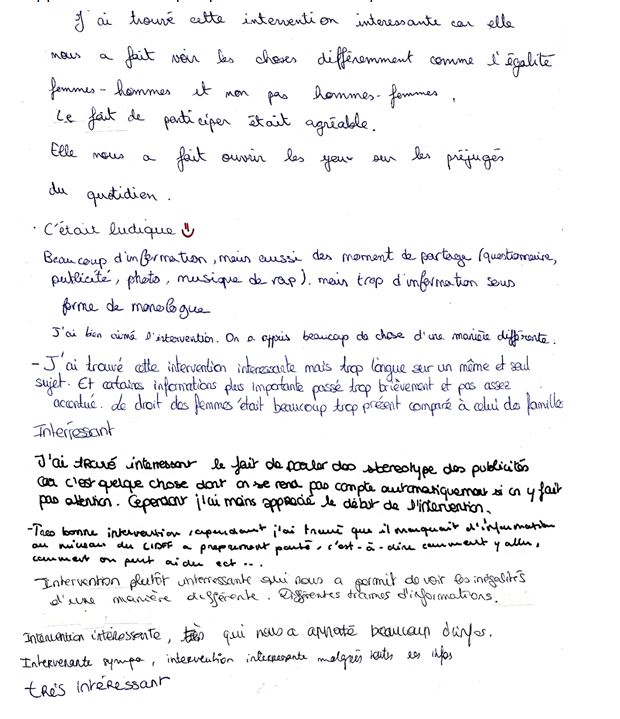 J'ai trouvé cette intervention interessante car elle
nous a fait voir les choses différemment comme l'égalité
femmes-hommes et non pas hommes-femmes.
Le fait de participer était agréable.
Elle nous a fait ouvrir les yeux sur les préjugés
du quotidien.
· C'était ludique
Beaucoup d'information, mais aussi des moment de partage (questionnaire,
publicité, photo, musique de rap). mais trop d'information sous
forme de monologue
J'ai bien aimé l'intervention. On a appris beaucoup de chose d'une manière différente.
- J'ai trouvé cette intervention interessante mais trop longue sur un même et seul
sujet. Et certaines informations plus importante passé trop brièvement et pas assez
accentué. Le droit des femmes était beaucoup trop présent comparé à celui des familles
Interressant
J'ai trouvé interressant le fait de parler des stereotype des publicités
car c'est quelque chose dont on se rend pas compte automatiquement si on y fait
pas attention. Cependant j'ai moins apprécié le début de l'intervention.
- Tres bonne intervention, cependant j'ai trouvé que il manquait d'information
au niveau du CIDFF a proprement parlé, c'est-à-dire comment y aller,
comment on peut aider ect...
Intervention plutôt interressante qui nous a permit de voir les inégalités
d'une manière différente. Différentes trames d'informations.
Intervention intéressante, très qui nous a apporté beaucoup d'infos.
Intervenante sympa, intervention interressante malgrès toutes ces infos
très intéressant